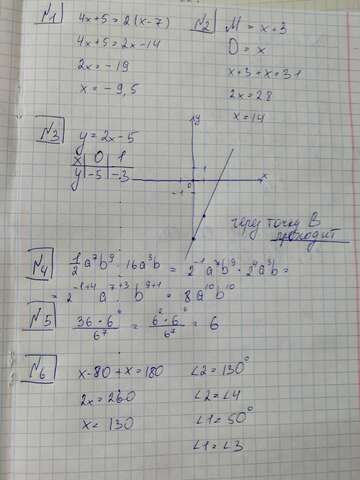 №1
4x+5=2(x-7)
4x+5=2x-14
2x=-19
x=-9,5
№2
M = x+3
D = x
x+3+x=31
2x=28
x=14
№3
y=2x-5
x | 0 | 1
y | -5 | -3
y
x
1
-1
0
через точку B
проходит
№4
1/2 a⁷b⁹ · 16a³b = 2⁻¹a⁷b⁹ · 2⁴a³b =
= 2⁻¹⁺⁴ a⁷⁺³ · b⁹⁺¹ = 8a¹⁰b¹⁰
№5
36·6⁶/6⁷ = 6²·6⁶/6⁷ = 6
№6
x-80+x=180
2x=260
x=130
∠2=130°
∠2=∠4
∠1=50°
∠1=∠3